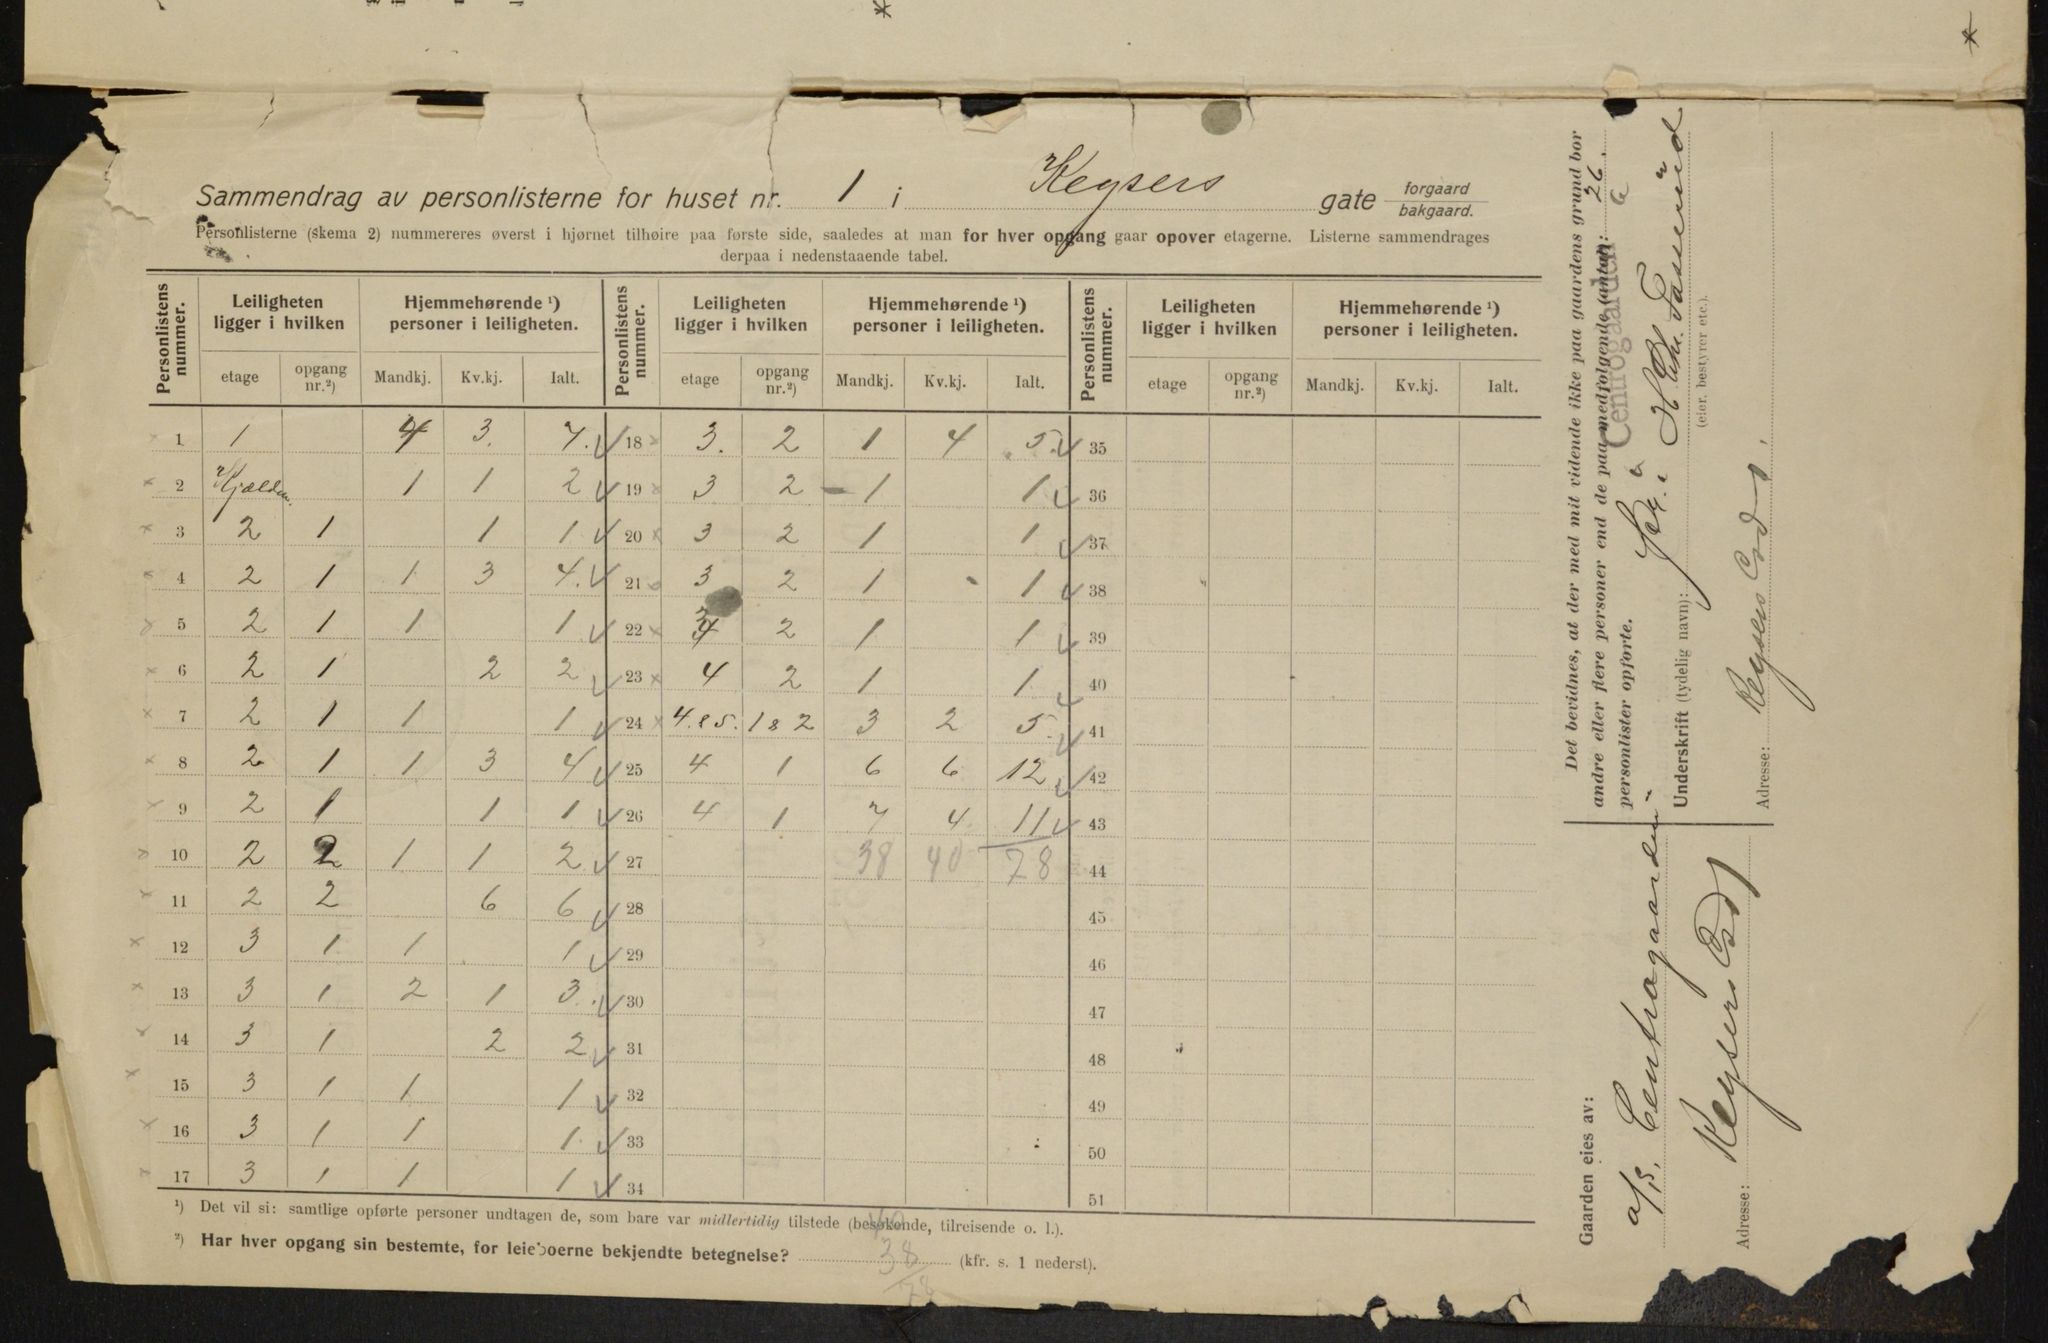 Sammendrag av personlisterne for huset nr. 1 i Keysers gate forgaard / bakgaard.
Personlisterne (skema 2) nummereres øverst i hjørnet tilhøire paa første side, saaledes at man for hver opgang gaar opover etagerne. Listerne sammendrages
derpaa i nedenstaaende tabel.
Personlistens nummer. | Leiligheten ligger i hvilken | Hjemmehørende ¹) personer i leiligheten. | Personlistens nummer. | Leiligheten ligger i hvilken | Hjemmehørende ¹) personer i leiligheten. | Personlistens nummer. | Leiligheten ligger i hvilken | Hjemmehørende ¹) personer i leiligheten.
etage | opgang nr.²) | Mandkj. | Kv.kj. | Ialt. | etage | opgang nr.²) | Mandkj. | Kv.kj. | Ialt. | etage | opgang nr.²) | Mandkj. | Kv.kj. | Ialt.
1 | 1 | | 4 | 3. | 7. | 18 | 3. | 2 | 1 | 4 | 5. | 35
2 | Kjælder. | | 1 | 1 | 2 | 19 | 3 | 2 | 1 | | 1 | 36
3 | 2 | 1 | | 1 | 1 | 20 | 3 | 2 | 1 | | 1 | 37
4 | 2 | 1 | 1 | 3 | 4. | 21 | 3 | 2 | 1 | | 1 | 38
5 | 2 | 1 | 1 | | 1 | 22 | 3 | 2 | 1 | | 1 | 39
6 | 2 | 1 | | 2 | 2 | 23 | 4 | 2 | 1 | | 1 | 40
7 | 2 | 1 | 1 | | 1 | 24 | 4. & 5. | 1 & 2 | 3 | 2 | 5. | 41
8 | 2 | 1 | 1 | 3 | 4 | 25 | 4 | 1 | 6 | 6 | 12 | 42
9 | 2 | 1 | | 1 | 1 | 26 | 4 | 1 | 7 | 4 | 11 | 43
10 | 2 | 2 | 1 | 1 | 2 | 27 | | | 38 | 40 | 78 | 44
11 | 2 | 2 | | 6 | 6 | 28 | 45
12 | 3 | 1 | 1 | | 1 | 29 | 46
13 | 3 | 1 | 2 | 1 | 3. | 30 | 47
14 | 3 | 1 | | 2 | 2 | 31 | 48
15 | 3 | 1 | 1 | | 1 | 32 | 49
16 | 3 | 1 | 1 | | 1. | 33 | 50
17 | 3 | 1 | 1 | | 1 | 34 | 51
¹) Det vil si: samtlige opførte personer undtagen de, som bare var midlertidig tilstede (besøkende, tilreisende o. l.).
²) Har hver opgang sin bestemte, for leieboerne bekjendte betegnelse? (kfr. s. 1 nederst).
40
38
78
Det bevidnes, at der med mit vidende ikke paa gaardens grund bor
andre eller flere personer end de paa medfølgende (antal): 26.
personlister opførte.
Centrogaarden
Underskrift (tydelig navn):
(eier, bestyrer etc.).
Adresse: Keysers Gd 1.
Gaarden eies av:
a/s. Centrogaarden
Adresse: Keysers Gd 1